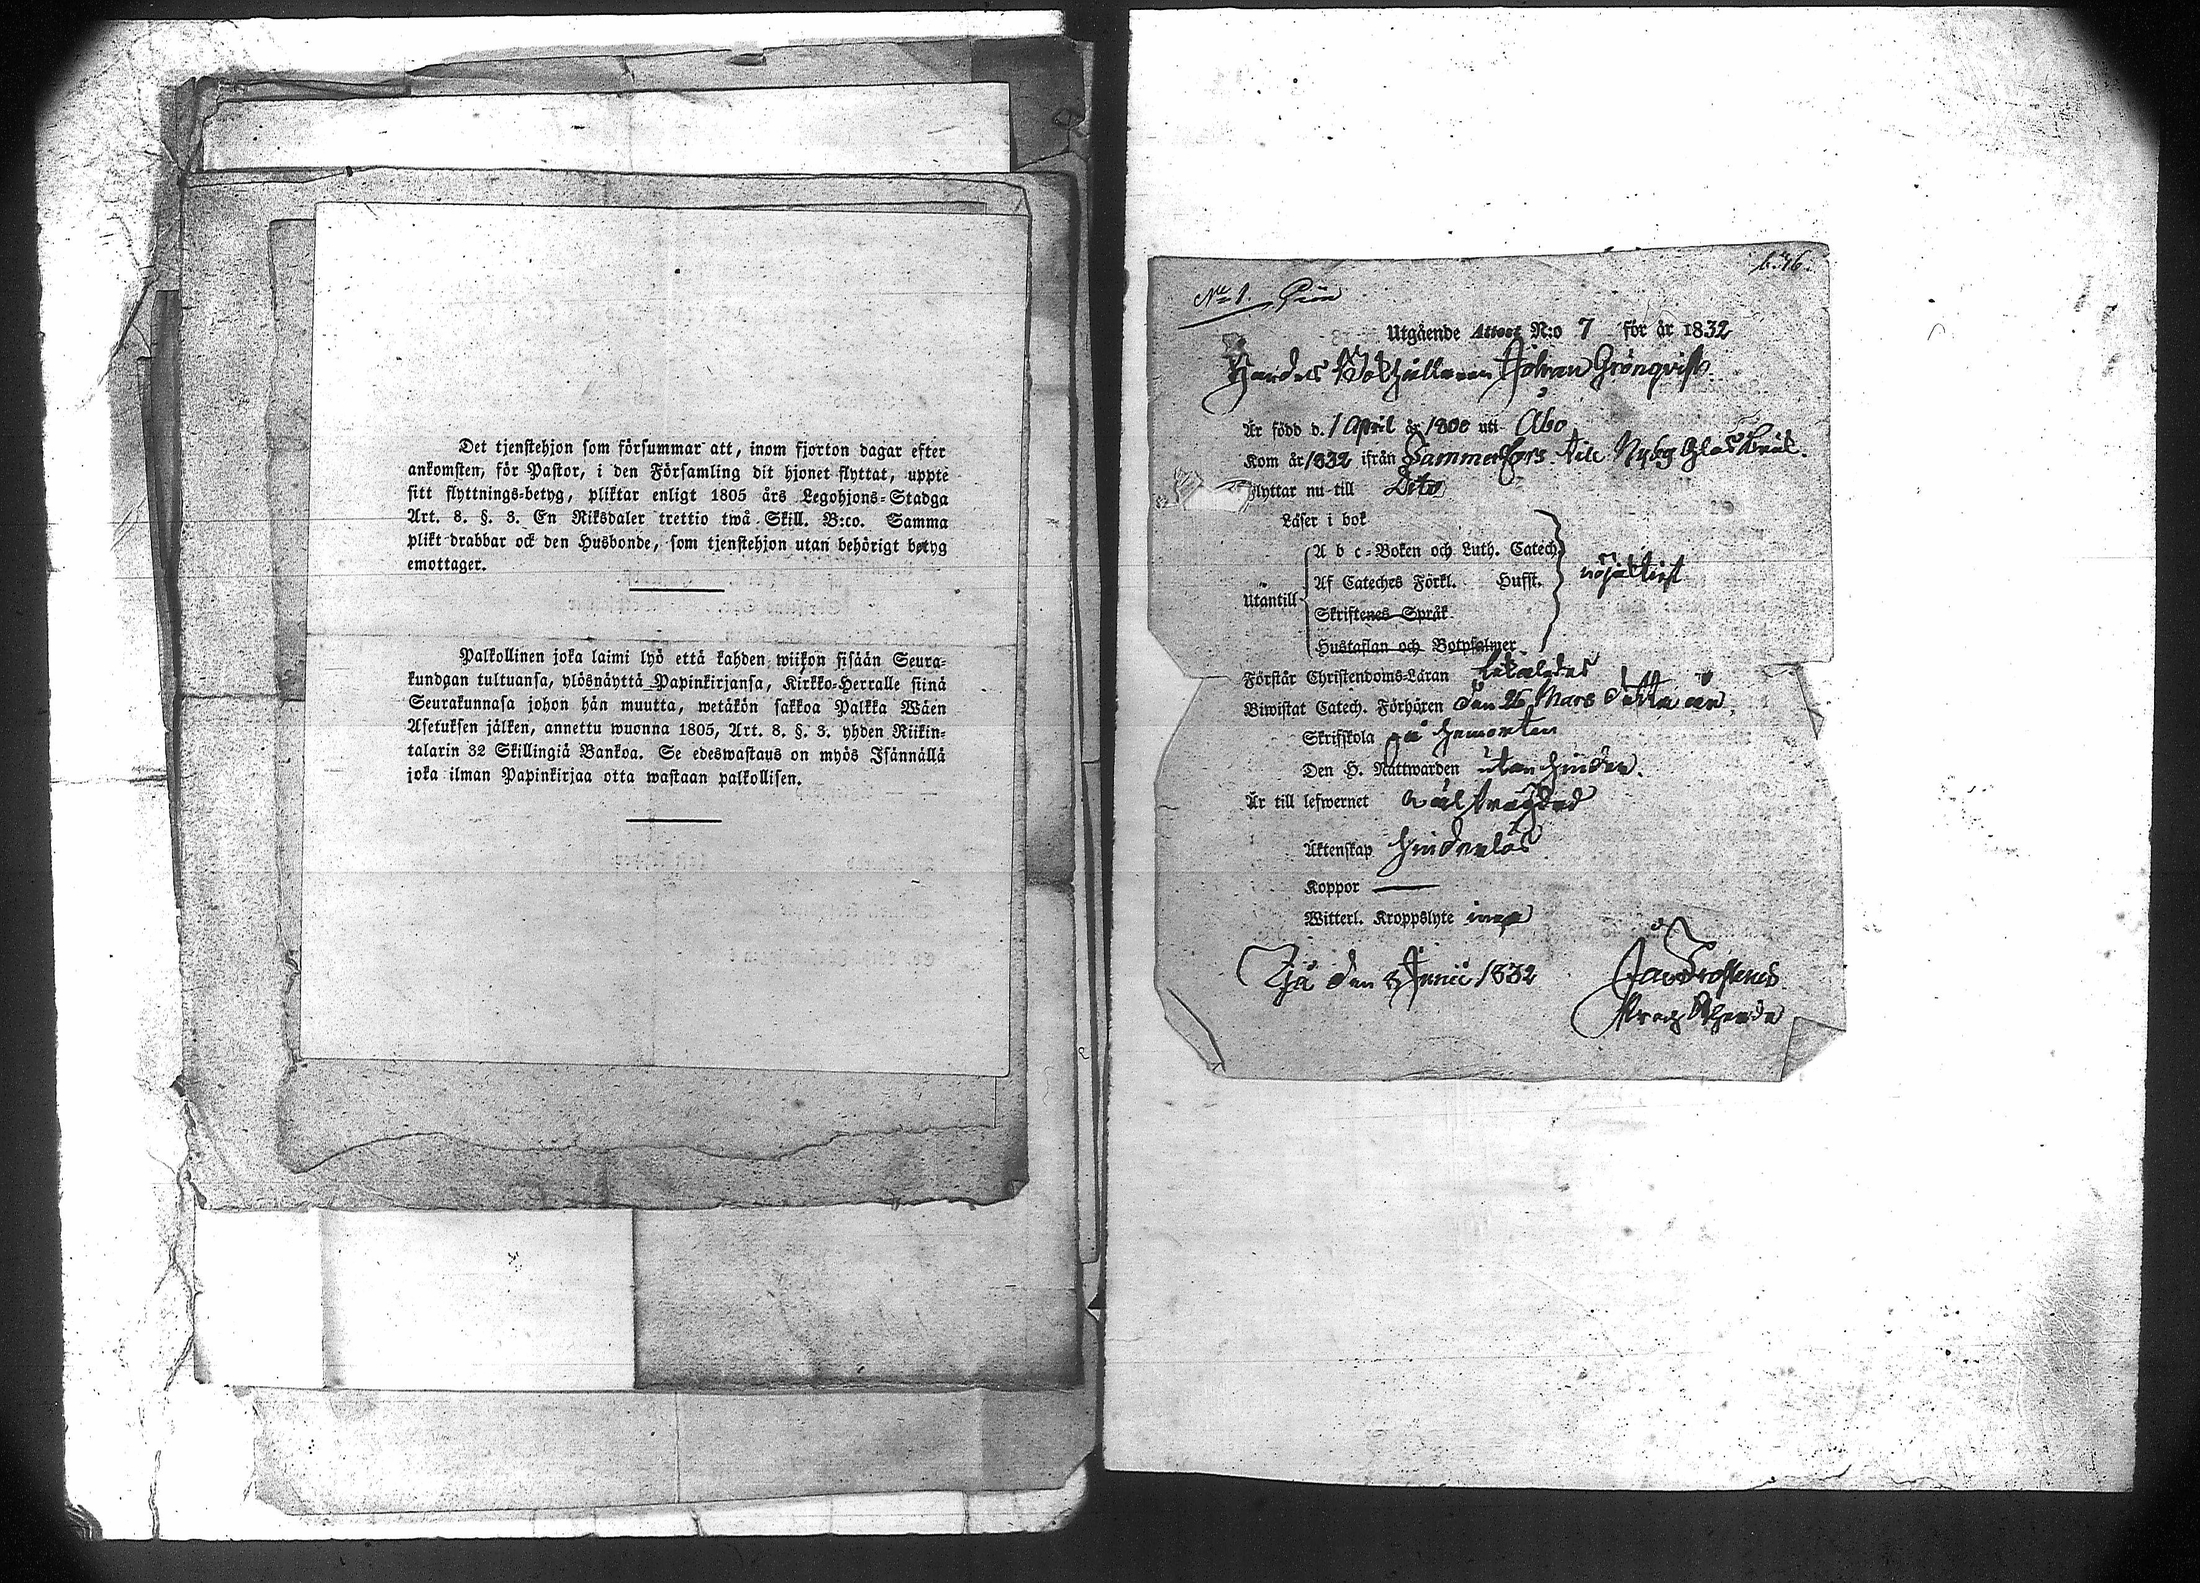 Det tjenstehjon som försummar att, inom fjorton dagar efter
ankomsten, för Pastor, i den Församling dit hjonet flyttat, uppte
sitt flyttnings-betyg, pliktar enligt 1805 års Legohjons-Stadga
Art. 8. §. 3. En Riksdaler trettio twå Skill. B:co. Samma
plikt drabbar ock den Husbonde, som tjenstehjon utan behörigt betyg
emottager.
Palkollinen joka laimi lyö että kahden wiikon sisään Seura-
kundaan tultuansa, ylösnäyttä Papinkirjansa, Kirkko-Herralle siinä
Seurakunnasa johon hän muutta, wetäkön sakkoa Palkka Wäen
Asetuksen jälken, annettu wuonna 1805, Art. 8. §. 3. yhden Riikin-
talarin 32 Skillingiä Bankoa. Se edeswastaus on myös Isännällä
joka ilman Papinkirjaa otta wastaan palkollisen.
No 1.
Utgående Attest N:o 7 för år 1832
Handels Bokhållaren Johan Grönqvist
Är född d. 1 April år 1800 uti Åbo
Kom år 1832 ifrån till Nyby Glas Bruk.
Flyttar nu till Dito
Läser i bok
A b c-Boken och Luth. Catech.
Af Cateches Förkl. Hufst.
Utantill
Skriftenes Språk
Hustaflan och Botpsalmer
Förstår Christendoms-Läran
Biwistat Catech. Förhören den 26 Mars detta år
Skriffkola på hemorten
Den H. Nattwarden utan hinder.
Är till lefwernet wälfrägdad
Äktenskap hinderlös
Koppor —
Witterl. Kroppslyte inga
Ijå den 3 Junii 1832